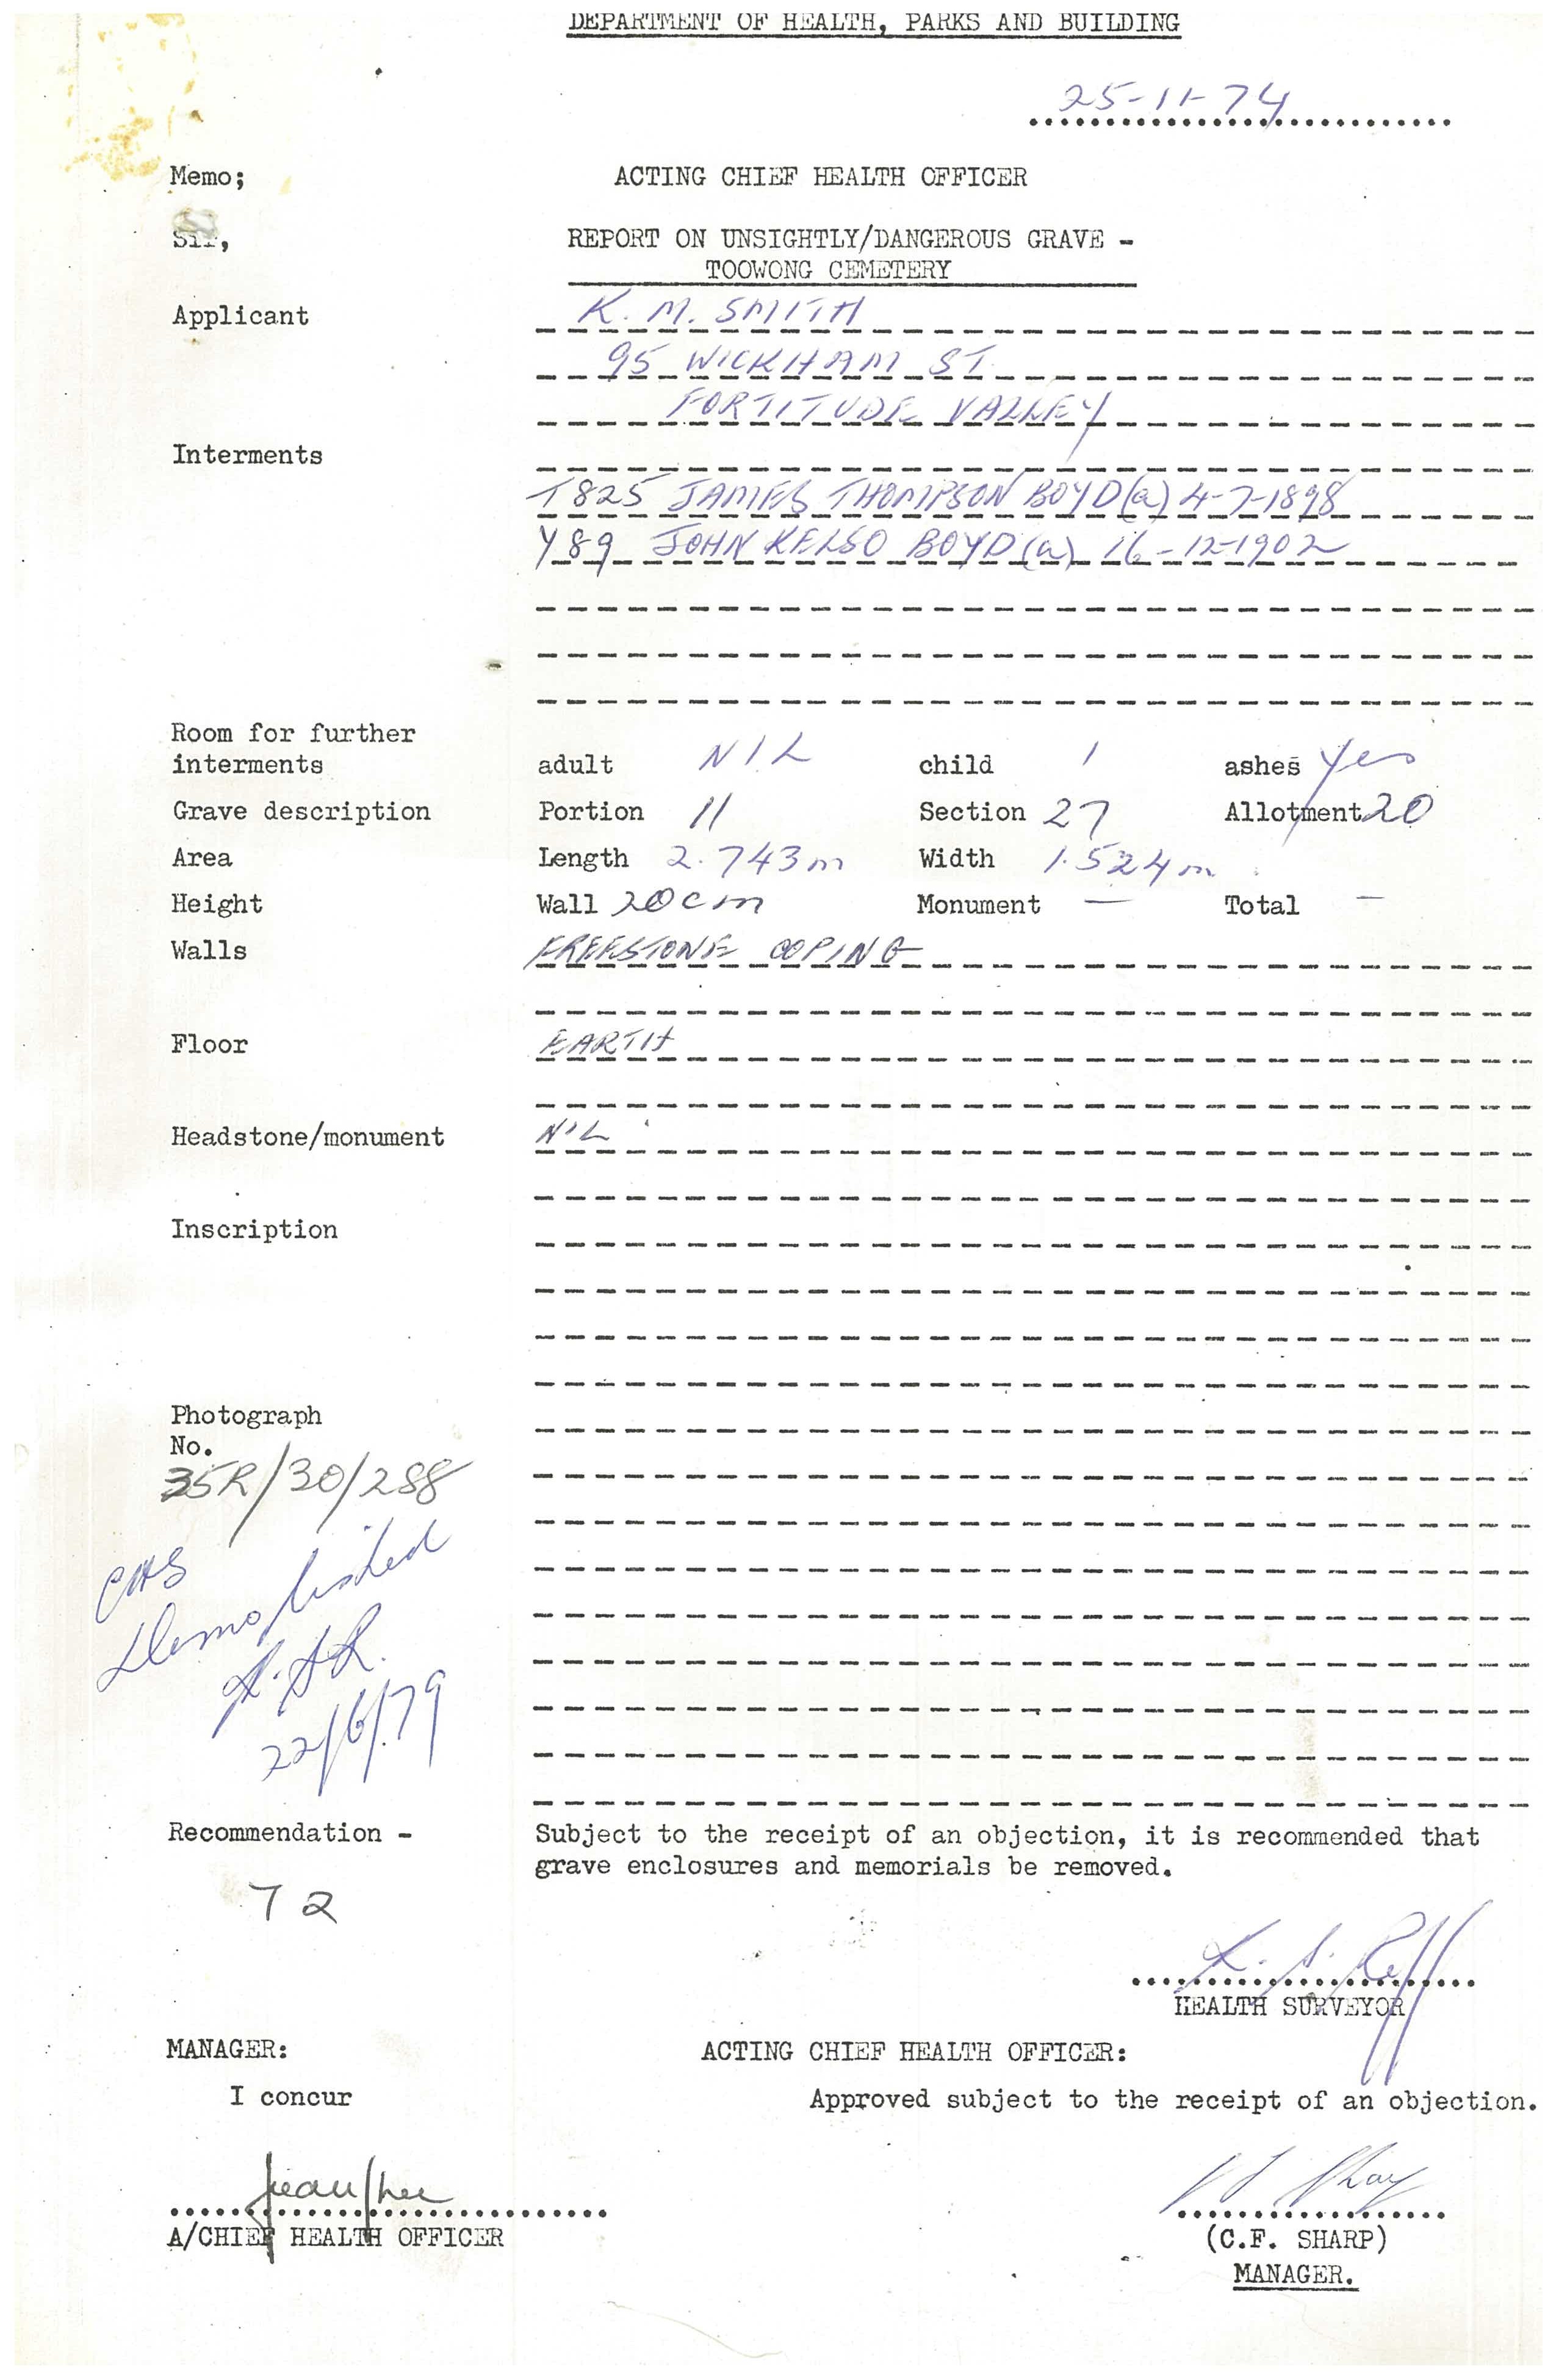 DEPARTMENT OF HEALTH, PARKS AND BUILDING
25-11-74
Memo; ACTING CHIEF HEALTH OFFICER
Sir, REPORT ON UNSIGHTLY/DANGEROUS GRAVE -
TOOWONG CEMETERY
Applicant K. M. SMITH
95 WICKHAM ST
FORTITUDE VALLEY
Interments
T825 JAMES THOMPSON BOYD (a) 4-7-1898
Y89 JOHN KELSO BOYD (a) 16-12-1902
Room for further
interments adult NIL child 1 ashes Yes
Grave description Portion 11 Section 27 Allotment 20
Area Length 2.743m Width 1.524m
Height Wall 20cm Monument — Total —
Walls FREESTONE COPING
Floor EARTH
Headstone/monument NIL
Inscription
Photograph
No.
35R/30/288
CHS
Demolished
22/6/79
Recommendation - Subject to the receipt of an objection, it is recommended that
grave enclosures and memorials be removed.
72
HEALTH SURVEYOR
MANAGER: ACTING CHIEF HEALTH OFFICER:
I concur Approved subject to the receipt of an objection.
A/CHIEF HEALTH OFFICER (C.F. SHARP)
MANAGER.